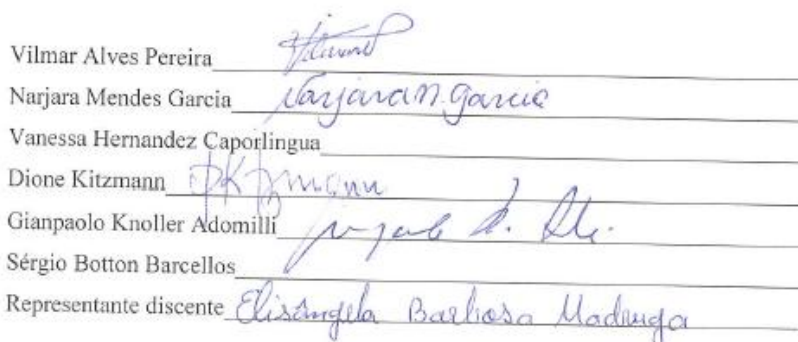 Vilmar Alves Pereira
Narjara Mendes Garcia Narjara M. Garcia
Vanessa Hernandez Caporlingua
Dione Kitzmann DKitzmann
Gianpaolo Knoller Adomilli
Sérgio Botton Barcellos
Representante discente Elisângela Barbosa Madruga